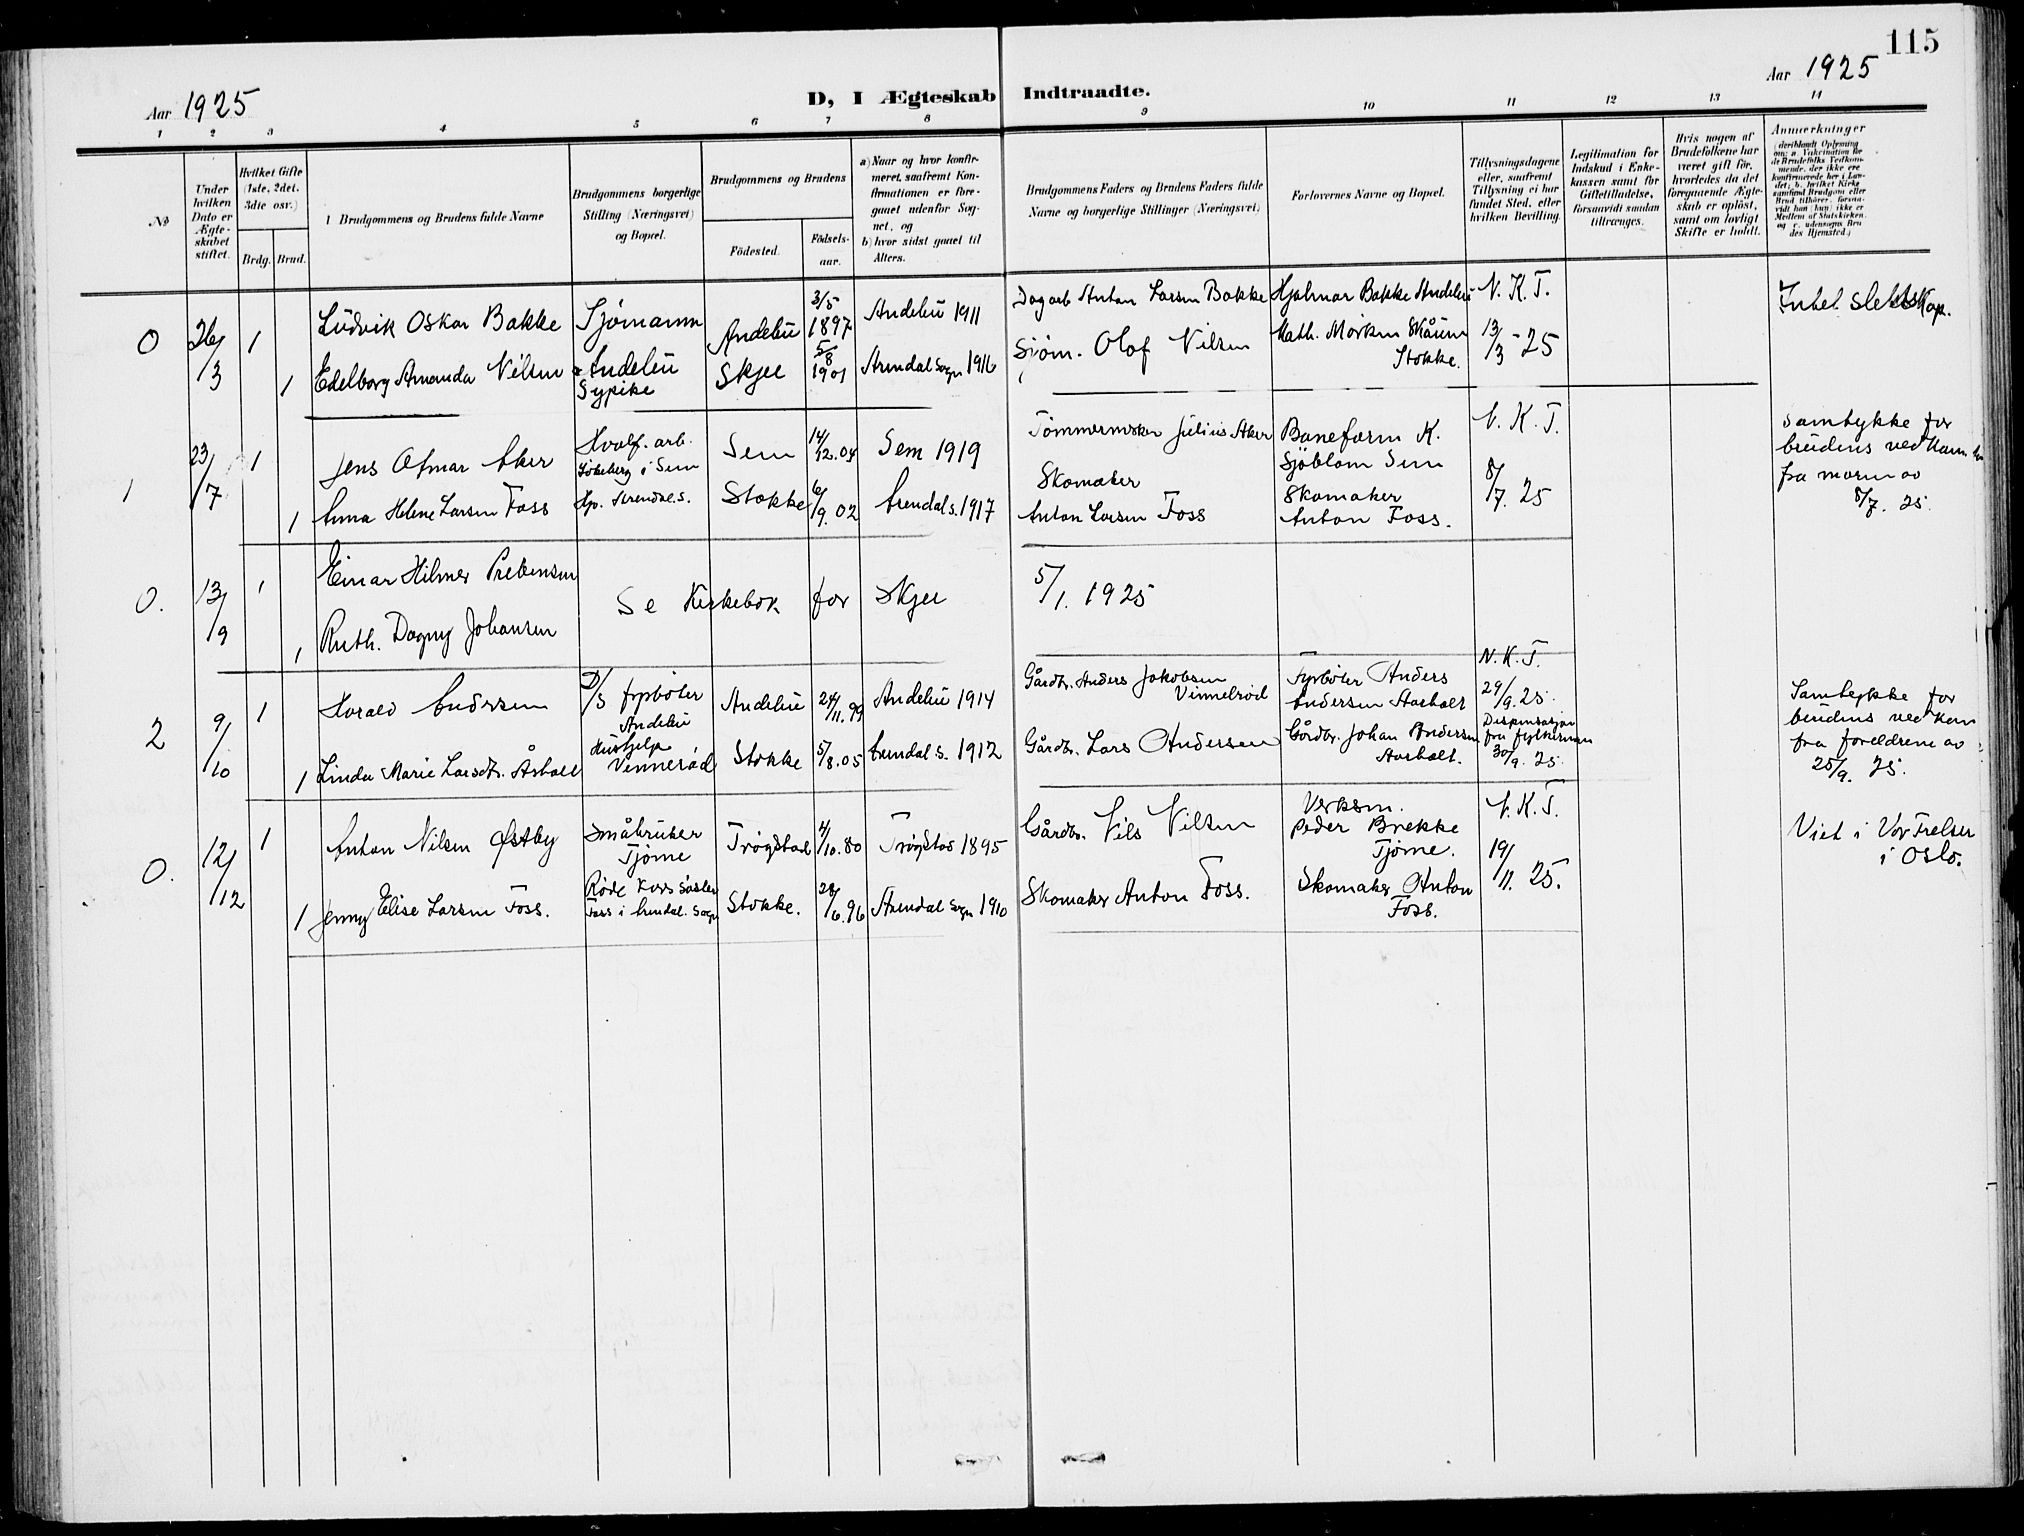 115
Aar 1925
D, I Ægteskab Indtraadte.
Aar 1925
1 2 3 4 5 6 7 8 9 10 11 12 13 14
No
Under hvilken Dato er Ægte-skabet stiftet.
Hvilket Gifte (1ste, 2det, 3die osv.)
Brdg. Brud.
Brudgommens og Brudens fulde Navne
Brudgommens borgerlige Stilling (Næringsvei) og Bopæl.
Brudgommens og Brudens
Födested.
Födsels-aar.
a) Naar og hvor konfir-meret, saafremt Kon-firmationen er fore-gaaet udenfor Sog-net, og
b) hvor sidst gaaet til Alters.
Brudgommens Faders og Brudens Faders fulde Navne og borgerlige Stillinger (Næringsvei)
Forlovernes Navne og Bopæl.
Tillysningsdagene eller, saafremt Tillysning ei har fundet Sted, efter hvilken Bevilling.
Legitimation for Indskud i Enke-kassen samt for Giftetilladelse, forsaavidt saadan tiltrænges.
Hvis nogen af Brudefolkene har været gift för, hvorledes da det foregaaende Ægte-skab er oplöst, samt om lovligt Skifte er holdt.
Anmærkninger
(deriblandt Oplysning om: a. Vakcination for de Brudefolks Vedkom-mende, der ikke ere konfirmerede her i Lan-det; b. hvilket Kirke-samfund Brudgom eller Brud tilhörer, forsaa-vidt han (hun) ikke er Medlem af Statskirken, og c. udensogns Bru-des Hjemsted.)
0 26/3 1 Ludvik Oskar Bakke Sjømann Andebu Andebu 3/5 1897 Andebu 1911 Dagarb Anton Larsen Bakke Hjalmar Bakke Andebu N. K. T. Intet slektskap.
1 Edelborg Amanda Nilsen Sypike Skjee 5/8 1901 Arendal sogn 1916 Sjøm. Olof Nilsen Math. Mørken Skåum Stokke. 13/3 - 25
1 23/7 1 Jens Osmar Aker Hvalf. arb. Jökeberg i Sem Sem 14/12.04 Sem 1919 Tömmermster Julius Aker Baneform K. Sjöblom Sem N. K. T. Samtykke for brudens vedkom. fra moren av 8/7. 25.
1 Anna Helene Larsen Foss Hp. Arendal s. Stokke 6/9. 02 Arendal s. 1917 Skomaker Anton Larsen Foss Skomaker Anton Foss. 8/7. 25
0. 13/9 1 Einar Hilmer Prebensen
Se Kirkebok for Skjee 5/1. 1925
1 Ruth. Dagny Johansen
2 9/10 1 Harald Andersen D/S fyrböter Andebu Andebu 24/11. 99 Andebu 1914 Gårdbr. Anders Jakobsen Vinnelröd Fyrböter Anders Andersen Aasholt N. K. T. 29/9. 25. Samtykke for brudens vedkom fra foreldrene av 25/9. 25.
1 Linda Marie Larsdtr. Åsholt Hushjelp Vennerød Stokke 5/8. 05 Arendal s. 1912 Gårdbr. Lars Andersen Gårdbr. Johan Andersen Aasholt. Dispensasjon fra fylkesman 30/9. 25.
0. 12/12 1 Anton Nilsen Østby Småbruker Tjøme Trøgstad 4/10. 80 Trøgstad 1895 Gårdbr. Nils Nilsen Verksm. Peder Brekke Tjøme. N. K. T. Viet i Vor Frelser i Oslo.
1 Jenny Elise Larsen Foss. Røde Kors søster Foss i Arendal. Sogn Stokke. 28/6. 96 Arendal sogn 1910 Skomaker Anton Foss. Skomaker Anton Foss. 19/11. 25.